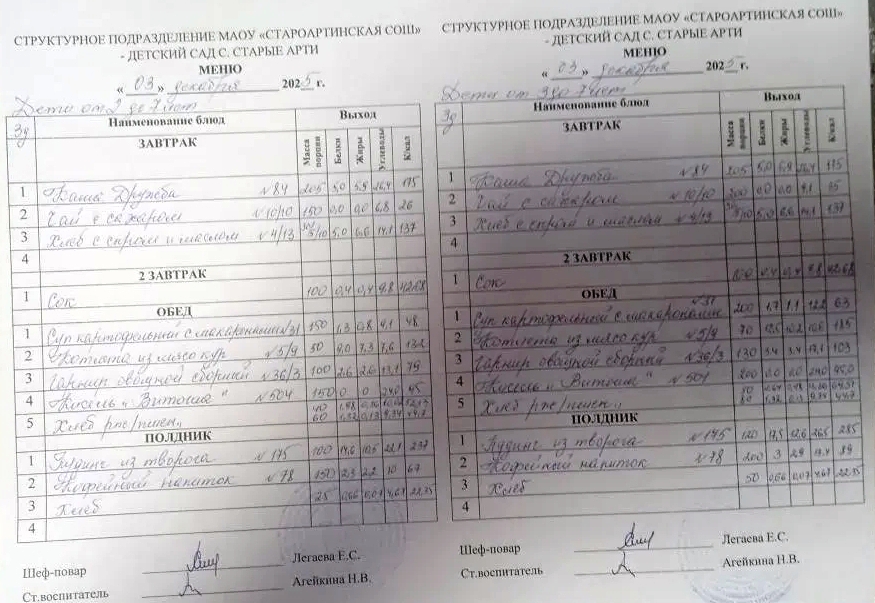 СТРУКТУРНОЕ ПОДРАЗДЕЛЕНИЕ МАОУ «СТАРОАРТИНСКАЯ СОШ»
- ДЕТСКИЙ САД С. СТАРЫЕ АРТИ
МЕНЮ
« 03 » декабря 2025 г.
Дети от 2 до 7 лет
3д Наименование блюд Выход
ЗАВТРАК Масса порции Белки Жиры Углеводы К/кал
1 Каша Дружба №84 205 5,0 5,9 26,4 175
2 Чай с сахаром №10/10 150 0,0 0,0 6,8 26
3 Хлеб с сыром и маслом №4/13 5,0 6,6 14,1 137
4
2 ЗАВТРАК
1 Сок 100 0,4 0,4 9,8 42,68
ОБЕД
1 Суп картофельный с макаронами №31 150 1,3 0,8 9,1 48
2 Котлета из мясо кур №5/9 50 9,0 7,3 7,6 132
3 Гарнир овощной сборный №36/3 100 2,6 2,6 13,1 79
4 Кисель „Витошка" №504 150 0 0 24,0 95
5 Хлеб рже/пшен.
ПОЛДНИК
1 Пудинг из творога №175 100 14,6 10,5 22,1 237
2 Кофейный напиток №78 150 2,3 2,2 10 67
3 Хлеб 25 0,66 0,07 4,67 22,35
4
Шеф-повар Легаева Е.С.
Ст.воспитатель Агейкина Н.В.
СТРУКТУРНОЕ ПОДРАЗДЕЛЕНИЕ МАОУ «СТАРОАРТИНСКАЯ СОШ»
- ДЕТСКИЙ САД С. СТАРЫЕ АРТИ
МЕНЮ
« 03 » декабря 2025 г.
Дети от 3 до 7 лет
3д Наименование блюд Выход
ЗАВТРАК Масса порции Белки Жиры Углеводы К/кал
1 Каша Дружба №84 205 5,0 5,9 26,4 175
2 Чай с сахаром №10/10 200 0,0 0,0 9,1 35
3 Хлеб с сыром и маслом №4/13 5,0 6,6 14,1 137
4
2 ЗАВТРАК
1 Сок 100 0,4 0,4 9,8 42,68
ОБЕД
1 Суп картофельный с макаронами №31 200 1,7 1,1 12,8 63
2 Котлета из мясо кур №5/9 70 12,5 10,2 10,6 185
3 Гарнир овощной сборный №36/3 130 3,4 3,4 17,1 103
4 Кисель „Витошка" №504 200 0,0 0,0 24,0 95,0
5 Хлеб рже/пшен.
ПОЛДНИК
1 Пудинг из творога №175 120 17,5 12,6 26,5 285
2 Кофейный напиток №78 200 3 2,9 13,4 89
3 Хлеб 50 0,66 0,07 4,67 22,35
4
Шеф-повар Легаева Е.С.
Ст.воспитатель Агейкина Н.В.